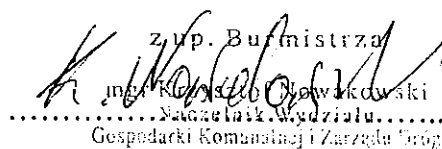 z up. Burmistrza
mgr Krzysztof Nowakowski
Naczelnik Wydziału
Gospodarki Komunalnej i Zarządu Dróg